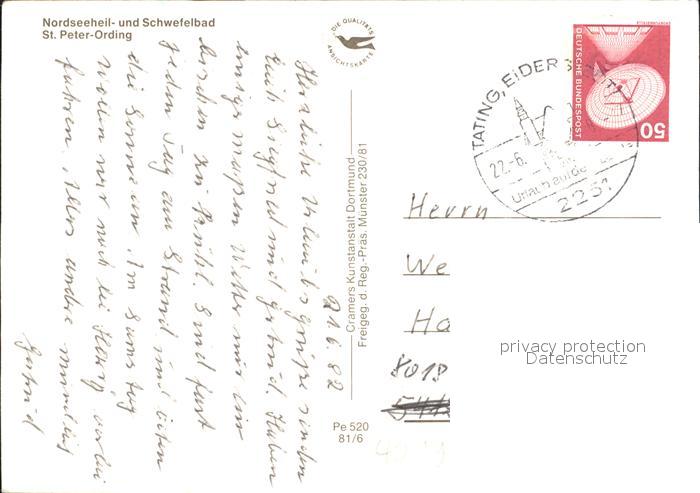 Nordseeheil- und Schwefelbad
St. Peter-Ording
DIE QUALITÄTS
ANSICHTSKARTE
21.6.82
Herzliche Urlaubsgrüße senden
Euch Siegfried und Gertrud. Haben
einiger maßen Wetter nur ein
bischen zu kühl. Sind fast
jeden Tag am Strand und beten
die Sonne an. Am Samstag
wollen wir noch bei Harry vorbei
fahren. Alles andere mündlich
Gertrud
Cramers Kunstanstalt Dortmund
Freigeg. d. Reg.-Präs. Münster 230/81
Pe 520
81/6
DEUTSCHE BUNDESPOST
50
TATING, EIDERSTEDT
22.-6.
Urlaub auf dem
2251
Herrn
We
Ha
8018
privacy protection
Datenschutz